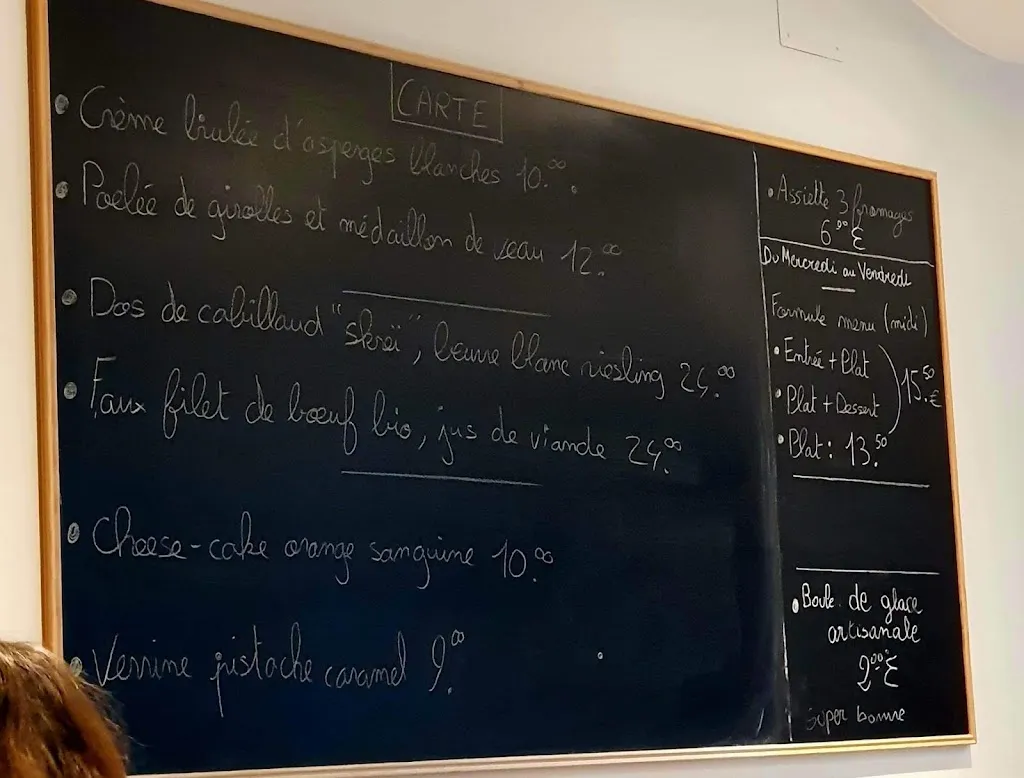 CARTE
• Crème brulée d'asperges blanches 10.00.
• Poelée de girolles et médaillon de veau 12.00
• Dos de cabillaud "skreï", beurre blanc riesling 24.00
• Faux filet de bœuf bio, jus de viande 24.00
• Cheese-cake orange sanguine 10.00
• Verrine pistache caramel 9.00
• Assiette 3 fromages
6.00 €
Du Mercredi au Vendredi
Formule menu (midi)
• Entrée + Plat
• Plat + Dessert
15.50 €
• Plat : 13.50
• Boule de glace
artisanale
2.00 €
super bonne